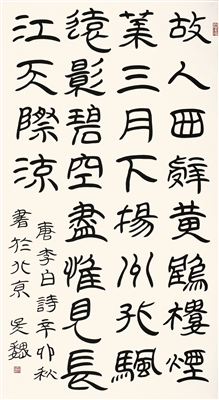 故人西辭黃鶴樓煙
華三月下楊州孤颿
遠影碧空盡惟見長
江天際流
唐李白詩辛卯秋
書於北京